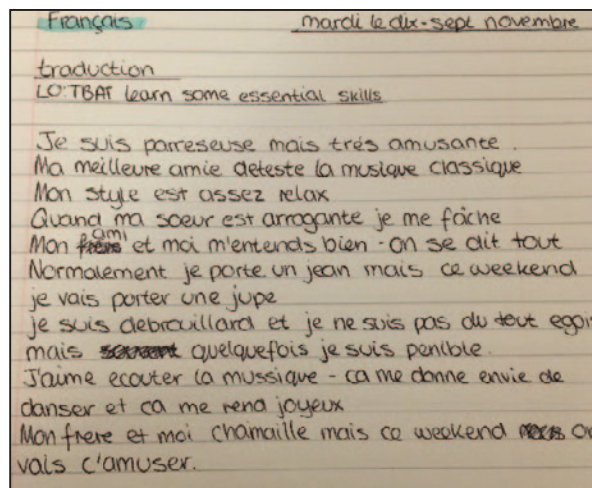 Français mardi le dix-sept novembre
traduction
LO: TBAT learn some essential skills
Je suis parreseuse mais trés amusante.
Ma meilleure amie deteste la musique classique
Mon style est assez relax
Quand ma soeur est arrogante je me fâche
Mon ami et moi m'entends bien - on se dit tout
Normalement je porte un jean mais ce weekend
je vais porter une jupe
je suis debrouillard et je ne suis pas du tout egois
mais quelquefois je suis penible.
J'aime ecouter la mussique - ca me donne envie de
danser et ca me rend joyeux
Mon frere et moi chamaille mais ce weekend on
vais c'amuser.